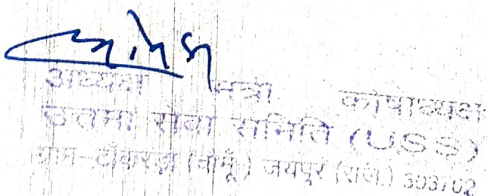 अध्यक्ष मंत्री कोषाध्यक्ष
सेवा समिति (USS)
ग्राम-टांकरड़ा (चौमूँ) जयपुर (राज.) 303702